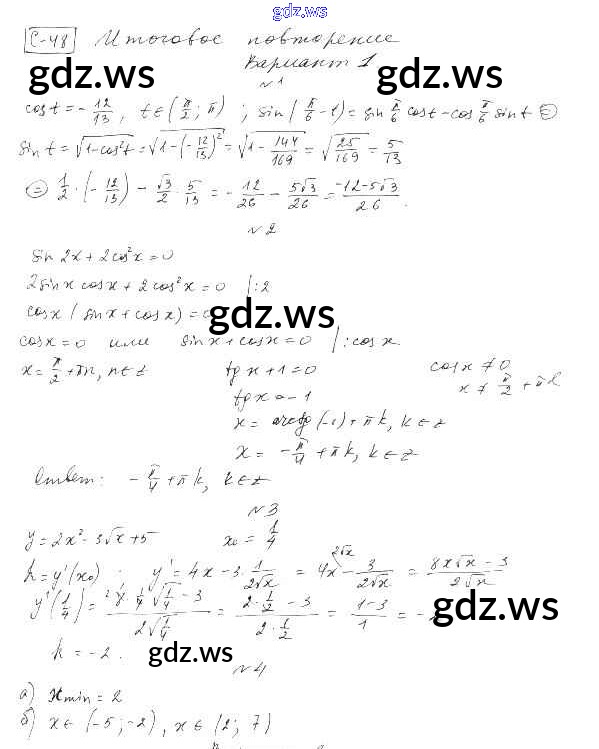 gdz.ws
С-48 Итоговое повторение
gdz.ws gdz.ws
Вариант 1
№1
cos t = -12/13, t ∈ (π/2; π) ; sin(π/6 - t) = sin π/6 cos t - cos π/6 sin t ⊜
sin t = √(1-cos²t) = √(1-(-12/13)²) = √(1 - 144/169) = √(25/169) = 5/13
⊜ 1/2 · (-12/13) - √3/2 · 5/13 = -12/26 - 5√3/26 = (-12-5√3)/26.
№2
sin 2x + 2cos²x = 0
2sin x cos x + 2cos²x = 0 |:2
cos x (sin x + cos x) = 0
gdz.ws
cos x = 0 или sin x + cos x = 0 |: cos x.
x = π/2 + πn, n ∈ z tg x + 1 = 0 cos x ≠ 0
tg x = -1 x ≠ π/2 + πk
x = arctg(-1) + πk, k ∈ z
x = -π/4 + πk, k ∈ z
Ответ: -π/4 + πk, k ∈ z
№3
y = 2x² - 3√x + 5 x₀ = 1/4
k = y'(x₀) y' = 4x - 3·1/(2√x) = 4x - 3/(2√x) = (8x√x - 3)/(2√x)
y'(1/4) = (8·1/4·√(1/4) - 3)/(2√(1/4)) = (2·1/2 - 3)/(2·1/2) = (1-3)/1 = -2
gdz.ws
k = -2.
gdz.ws
№4
а) x min = 2
б) x ∈ (-5; -2), x ∈ (2; 7)